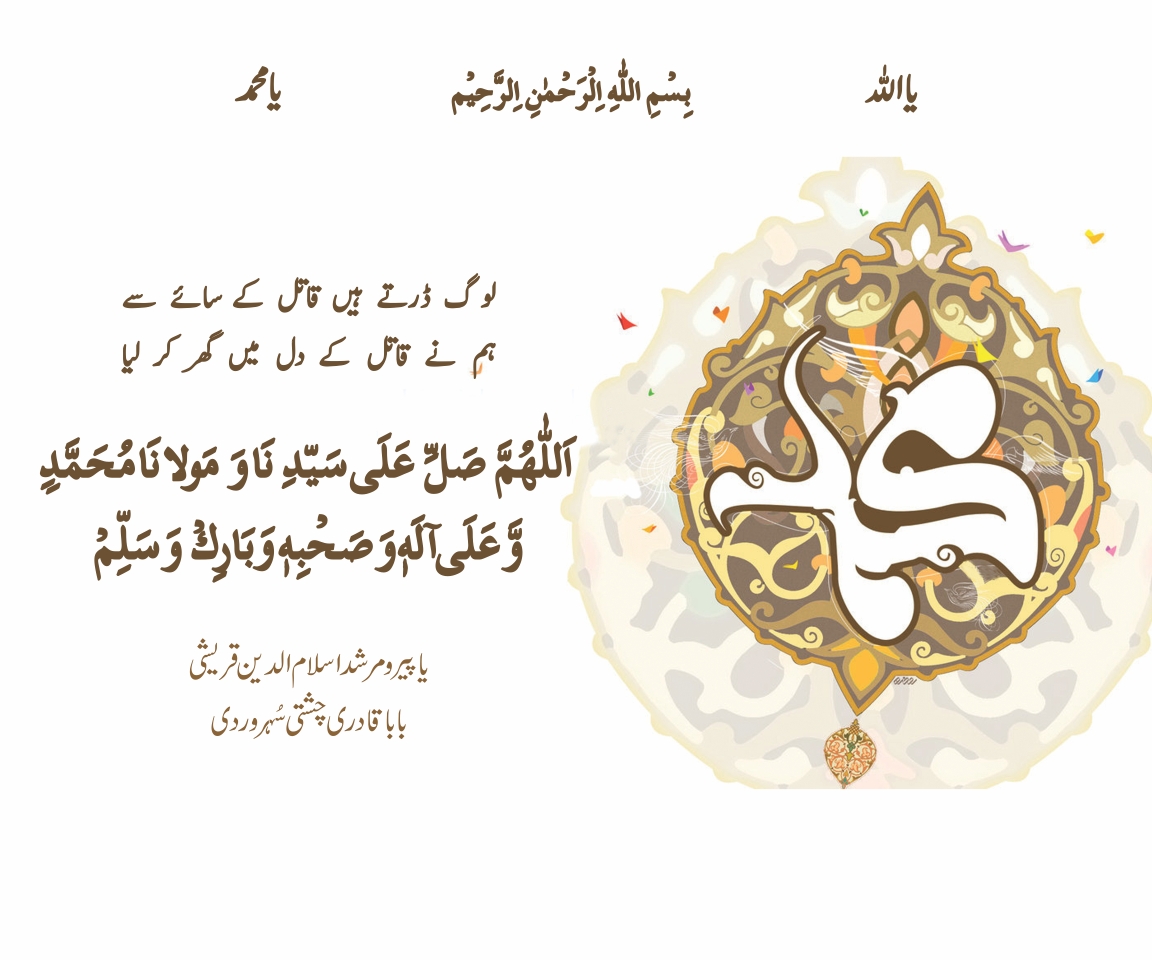 یااللہ بِسْمِ اللّٰهِ الْرَحْمٰنِ الرَّحِيْم یامحمدؐ
لوگ ڈرتے ہیں قاتل کے سائے سے
ہم نے قاتل کے دل میں گھر کر لیا
اَللّٰهُمَّ صَلِّ عَلَى سَيّدِ نَا وَ مَولا نَا مُحَمَّدٍ
وَّ عَلَى آلَهٖ وَ صَحْبِهٖ وَ بَارِكْ وَ سَلِّمْ
محمد
یا پیر و مرشد اسلام الدین قریشی
بابا قادری چشتی سُہروردی